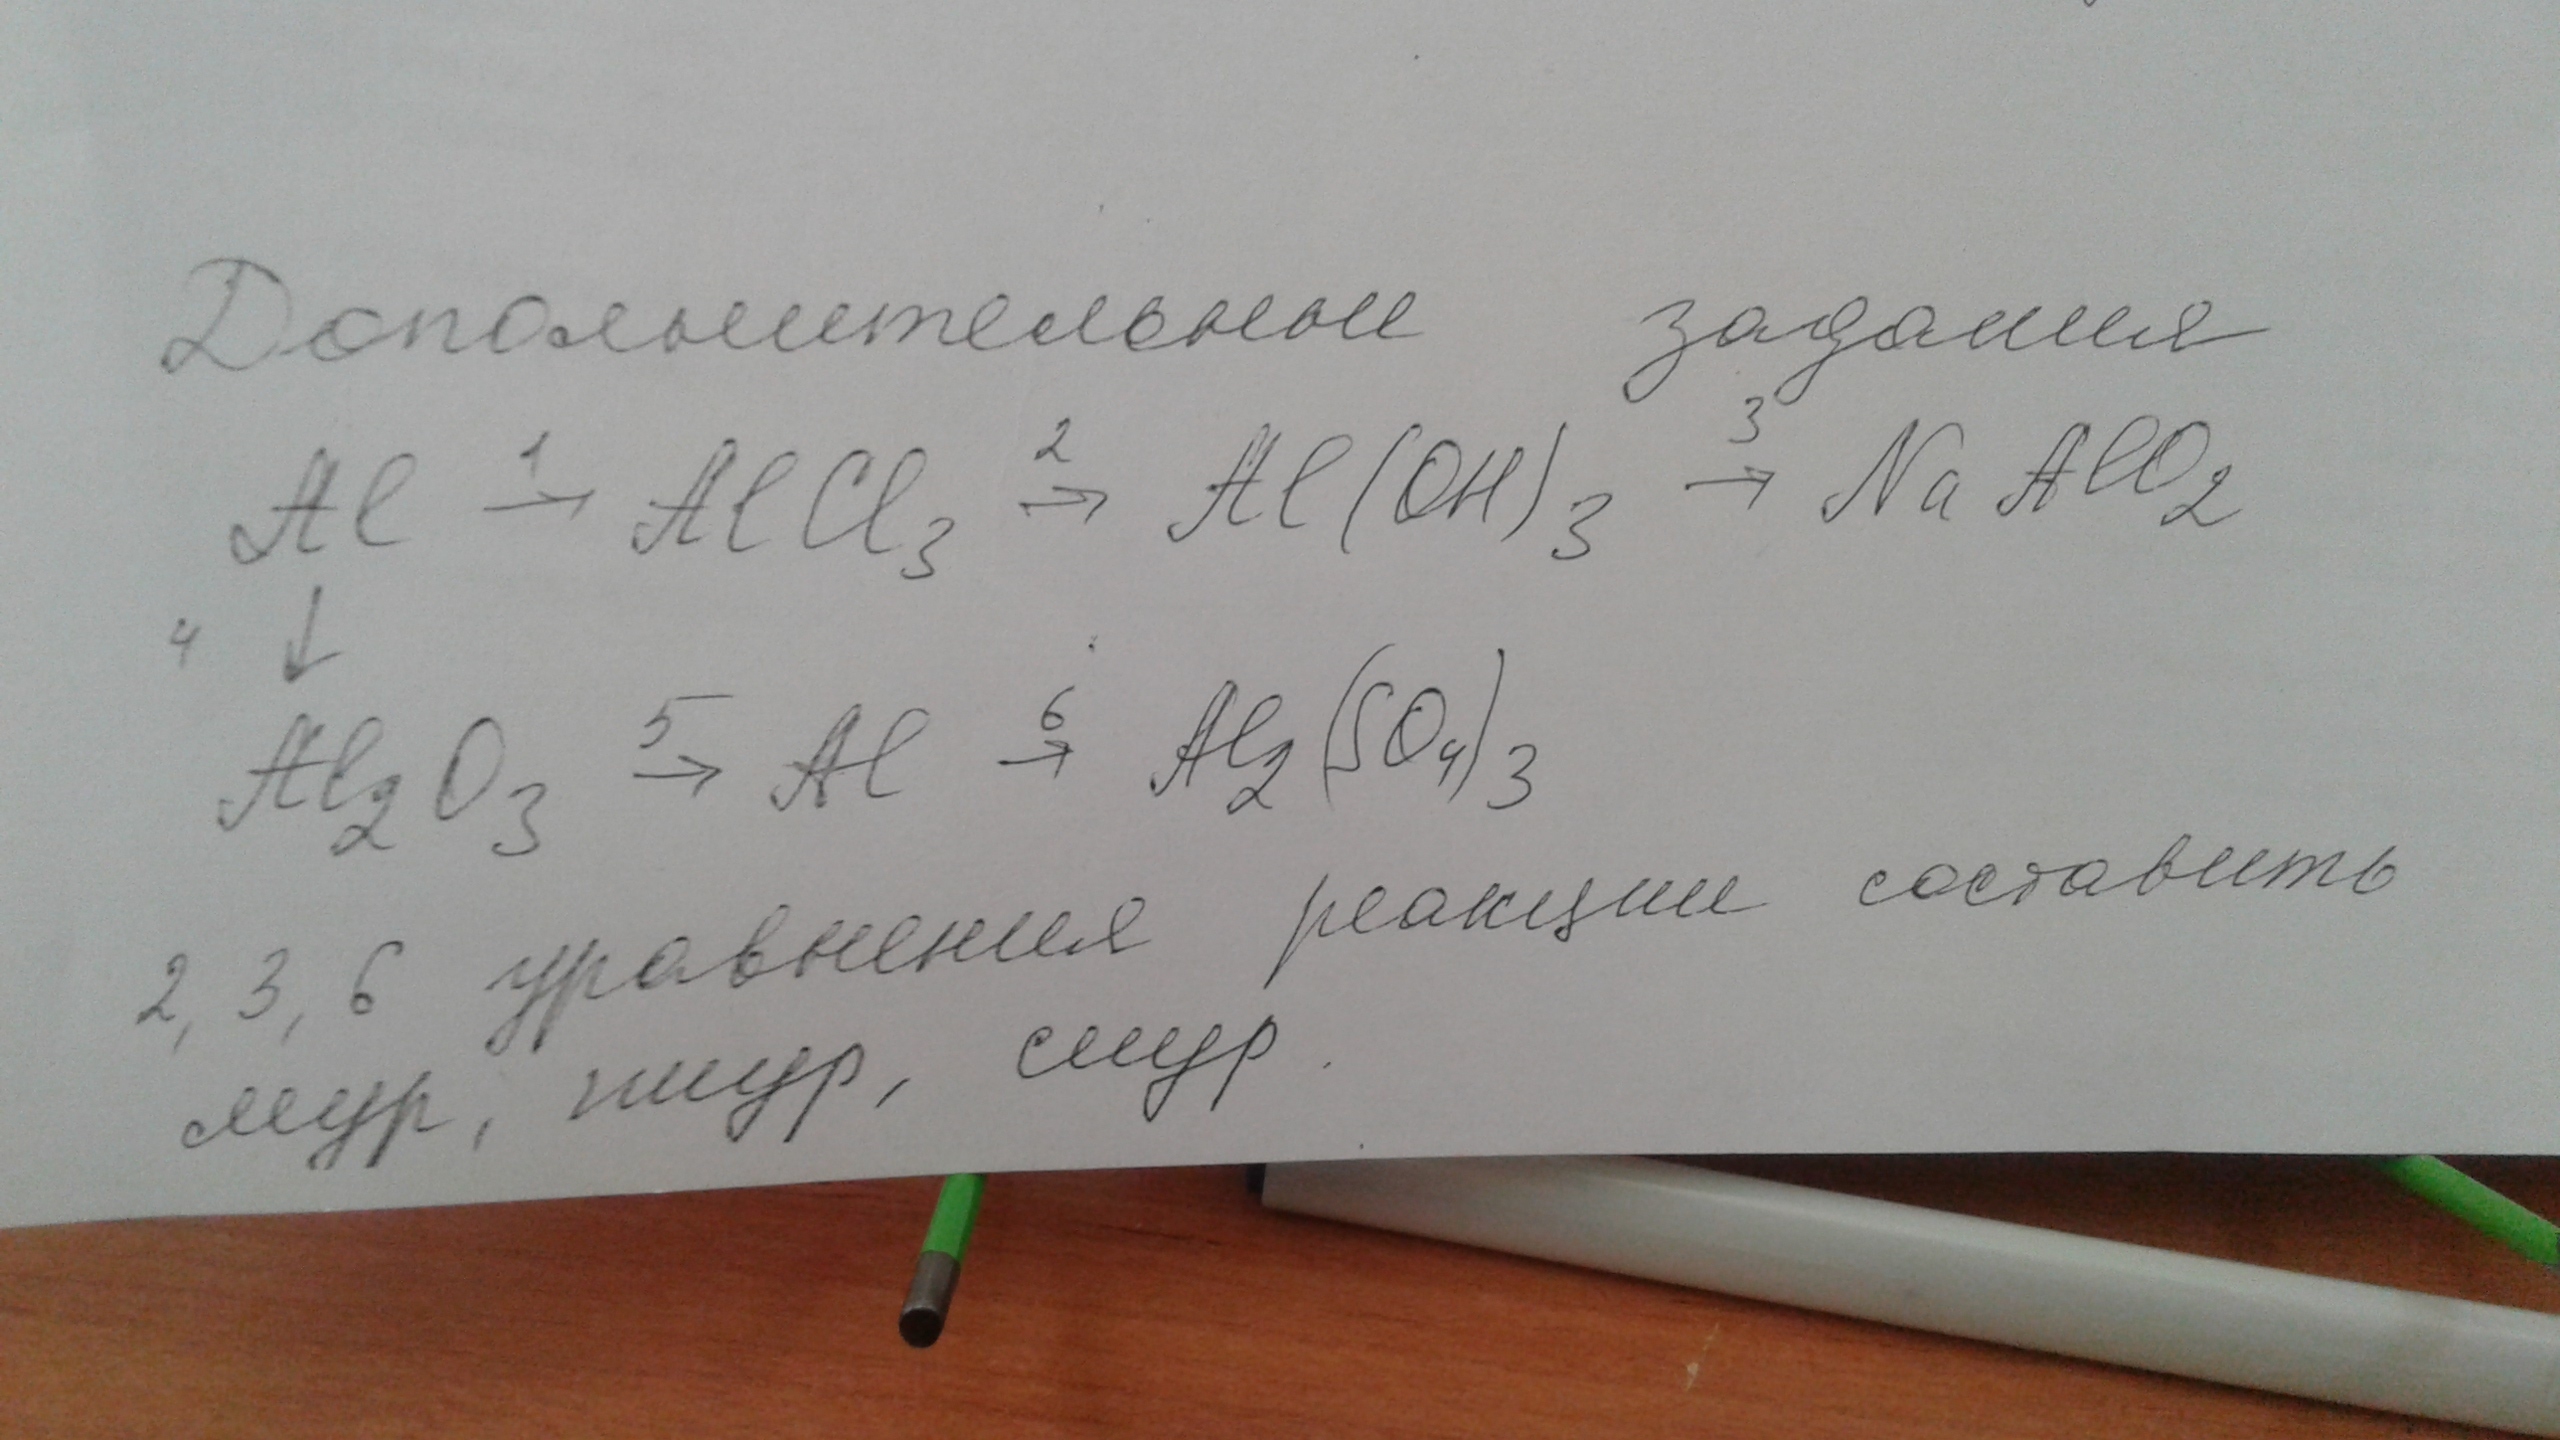 Дополнительные задания
Al →¹ AlCl₃ →² Al(OH)₃ →³ NaAlO₂
4 ↓
Al₂O₃ →⁵ Al →⁶ Al₂(SO₄)₃
2, 3, 6 уравнения реакции составить
мур, пиур, сиур.